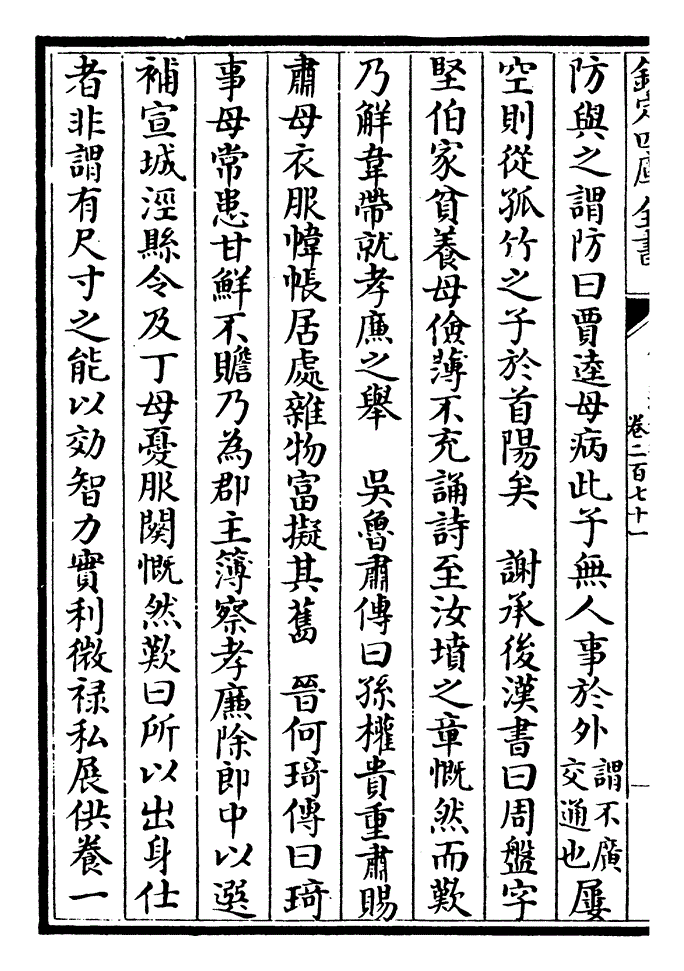 欽定四庫全書
卷二百七十一
防與之謂防曰賈逵母病此子無人事於外謂不廣交通也屢
空則從孤竹之子於首陽矣　謝承後漢書曰周盤字
堅伯家貧養母儉薄不充誦詩至汝墳之章慨然而歎
乃解韋帶就孝廉之舉　吳魯肅傳曰孫權貴重肅賜
肅母衣服幃帳居處雜物富擬其舊　晉何琦傳曰琦
事母常患甘鮮不贍乃為郡主簿察孝廉除郎中以選
補宣城涇縣令及丁母憂服闋慨然歎曰所以出身仕
者非謂有尺寸之能以効智力實利微祿私展供養一